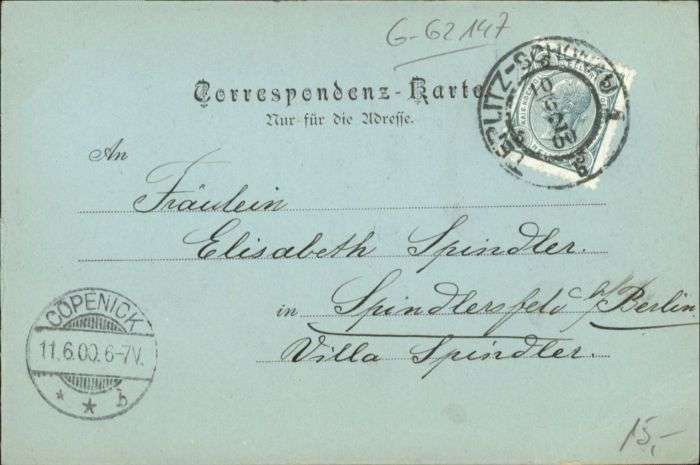 G-62147
TEPLITZ-SCHÖNAU 1
10
6
00
Correspondenz-Karte
Nur für die Adresse.
An
Fräulein
Elisabeth Spindler.
in Spindlersfeld b/ Berlin
Villa Spindler.
CÖPENICK
11.6.00.6-7V.
* * b
15,-